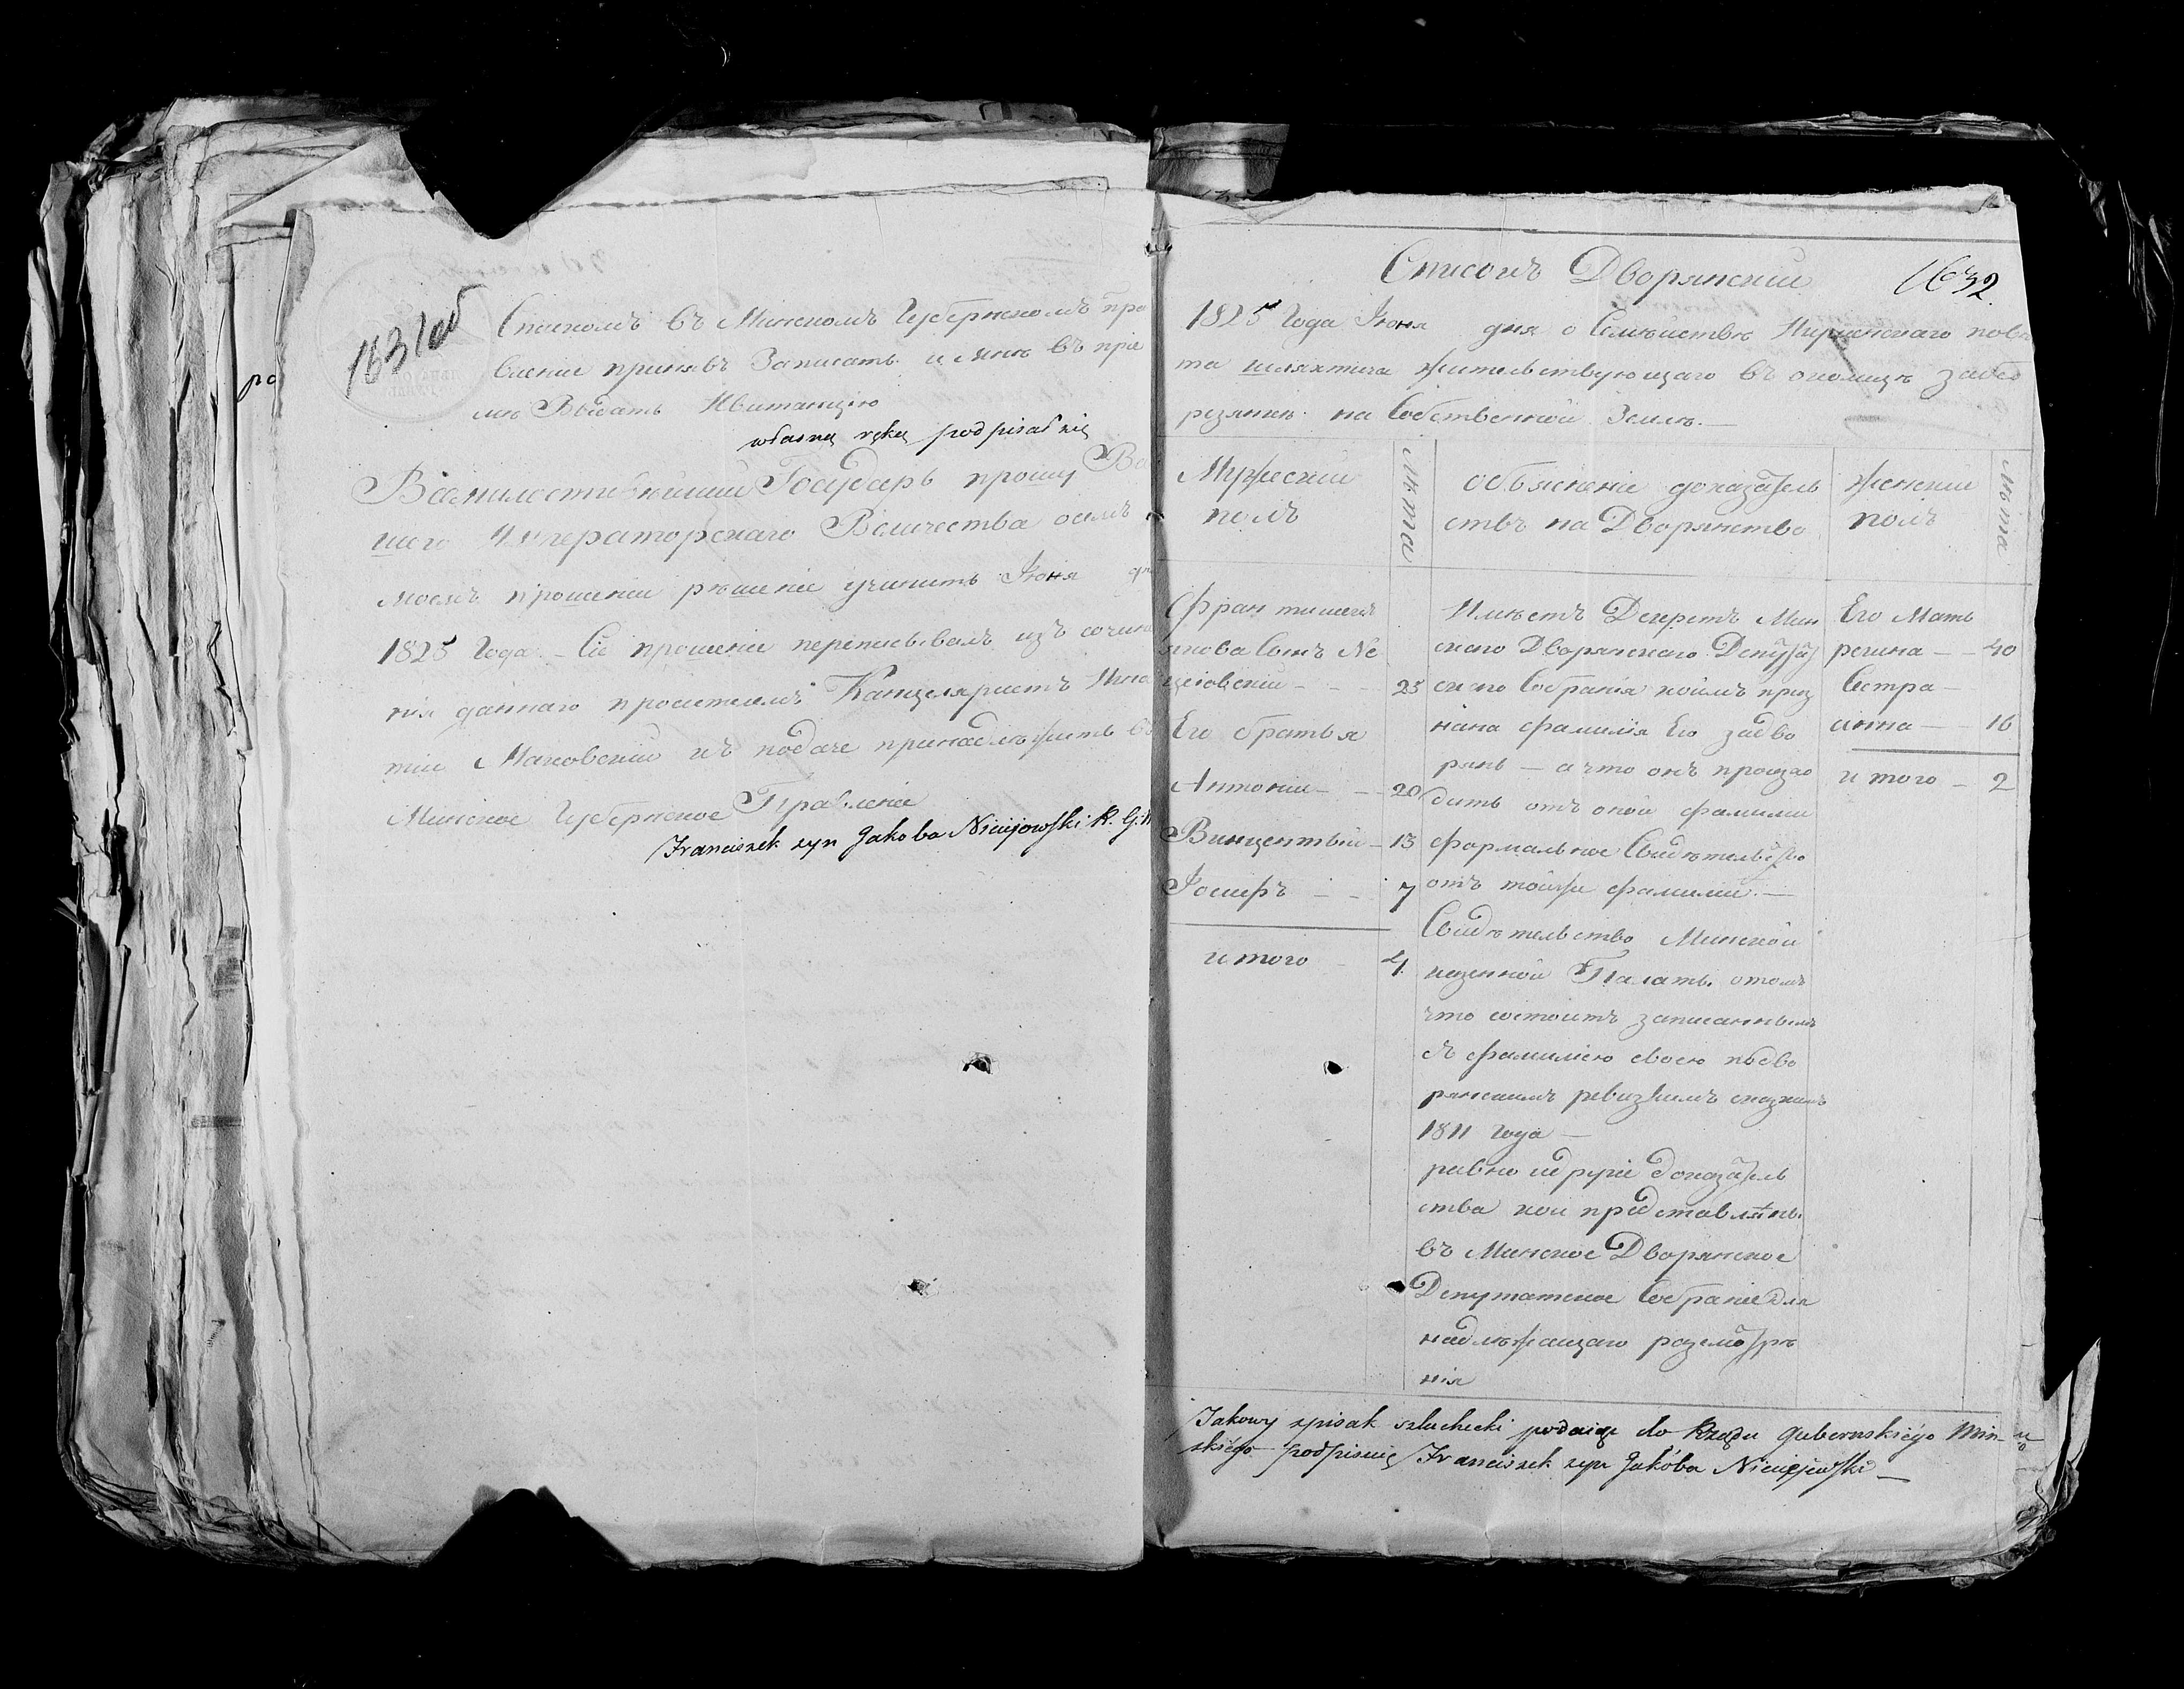 1631об
Списколъ въ Минсколъ Губернсколъ пра
вленіе принявъ Записать и мнѣ въ прі
мѣ Выдать Квитанцію
własną ręką podpisał się
Всемилостивѣйшій Государь прошу Ва
шего Императорскаго Величества о семъ
моемъ прошеніи рѣшеніе учинить Іюня дн
1825 Года – Сіе прошеніе переписывалъ изъ сочине
нія даннаго просителемъ Канцеляристъ Игна
тій Маковскій къ подаче принадлѣжитъ въ
Минское Губернское Правленіе
Franciszek syn Jakoba Niciejowski
ро
1632.
Списокъ Дворянскій
1825 Года Іюня дня о Семѣйствѣ повѣ
та шляхтича жительствующаго въ околицѣ
на Собственной Землѣ. —
Мужескій
полъ
Лѣта
Объясненіе доказатель
ствъ на Дворянство
Женскій
полъ
Лѣта
Францишекъ
Якова Сынъ Не
цеіовскій – – – 25
Его братья
Антоній – – 20
Винцентый – 13
Іосифъ – – 7
и того – 4
Имѣетъ Декретъ Мин
скаго Дворянскаго Депутат
скаго Собранія коимъ приз
нана фамилія Его задво
рянъ — а что онъ происхо
дитъ отъ оной фамиліи
формальное Свидѣтельство
отъ тойже фамиліи. —
Свидѣтельство Минской
казенной Палаты отомъ
что состоитъ записаннымъ
съ фамиліею своею подво
рянскимъ ревизкимъ сказкамъ
1811 Года —
равно идругіе доказатель
ства кои представлѣны
въ Минское Дворянское
Депутатское Собраніе для
надлѣжащаго разсмотрѣ
нія
Его Мать
регина – – 40
Сестра –
анна – – 16
и того – 2
Jakowy spisak szluchecki podaiąc do Rządu gubernskiégo Min-
skiégo podpisuię Franciszek syn Jakóba Niciejewski —